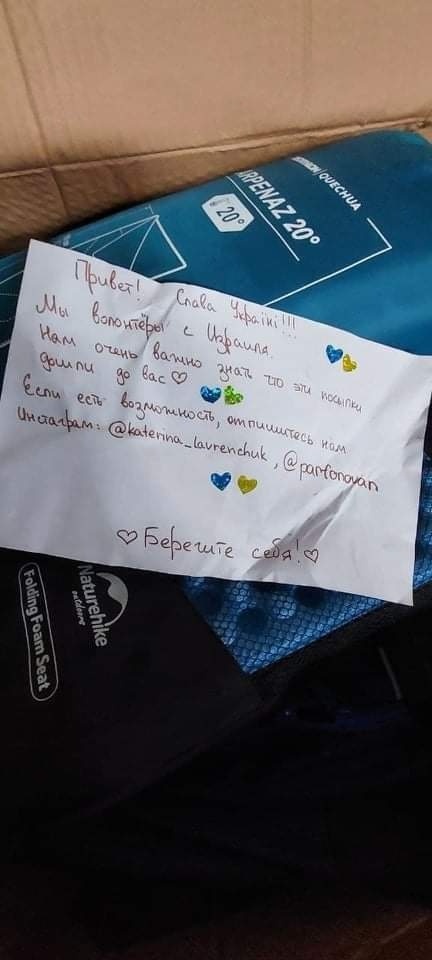 DECATHLON | QUECHUA
ARPENAZ 20°
20°
Привет! Слава Україні!!!
Мы волонтёры с Израиля.
Нам очень важно знать что эти посылки
дошли до вас♡
Если есть возможность, отпишитесь нам
Инстаграм: @katerina_lavrenchuk, @parfonovan
♡Берегите себя!♡
Naturehike
outdoors
Folding Foam Seat